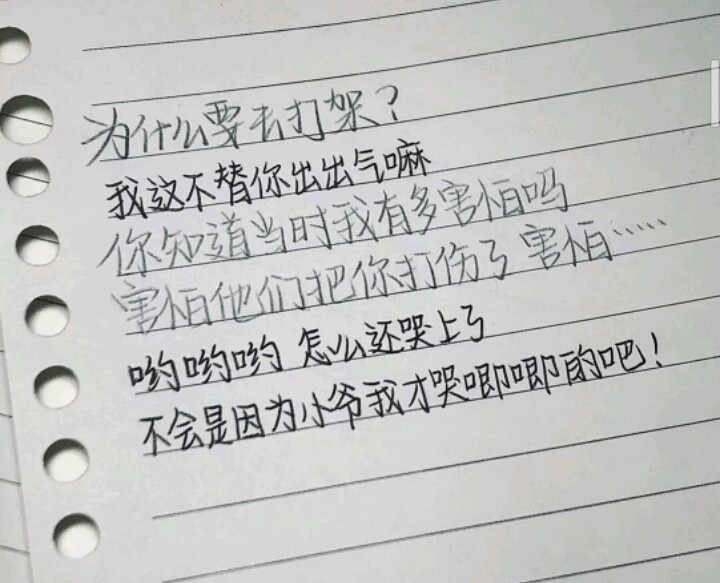 为什么要去打架？
我这不替你出出气嘛
你知道当时我有多害怕吗
害怕他们把你打伤了 害怕……
哟哟哟 怎么还哭上了
不会是因为小爷我才哭唧唧的吧！